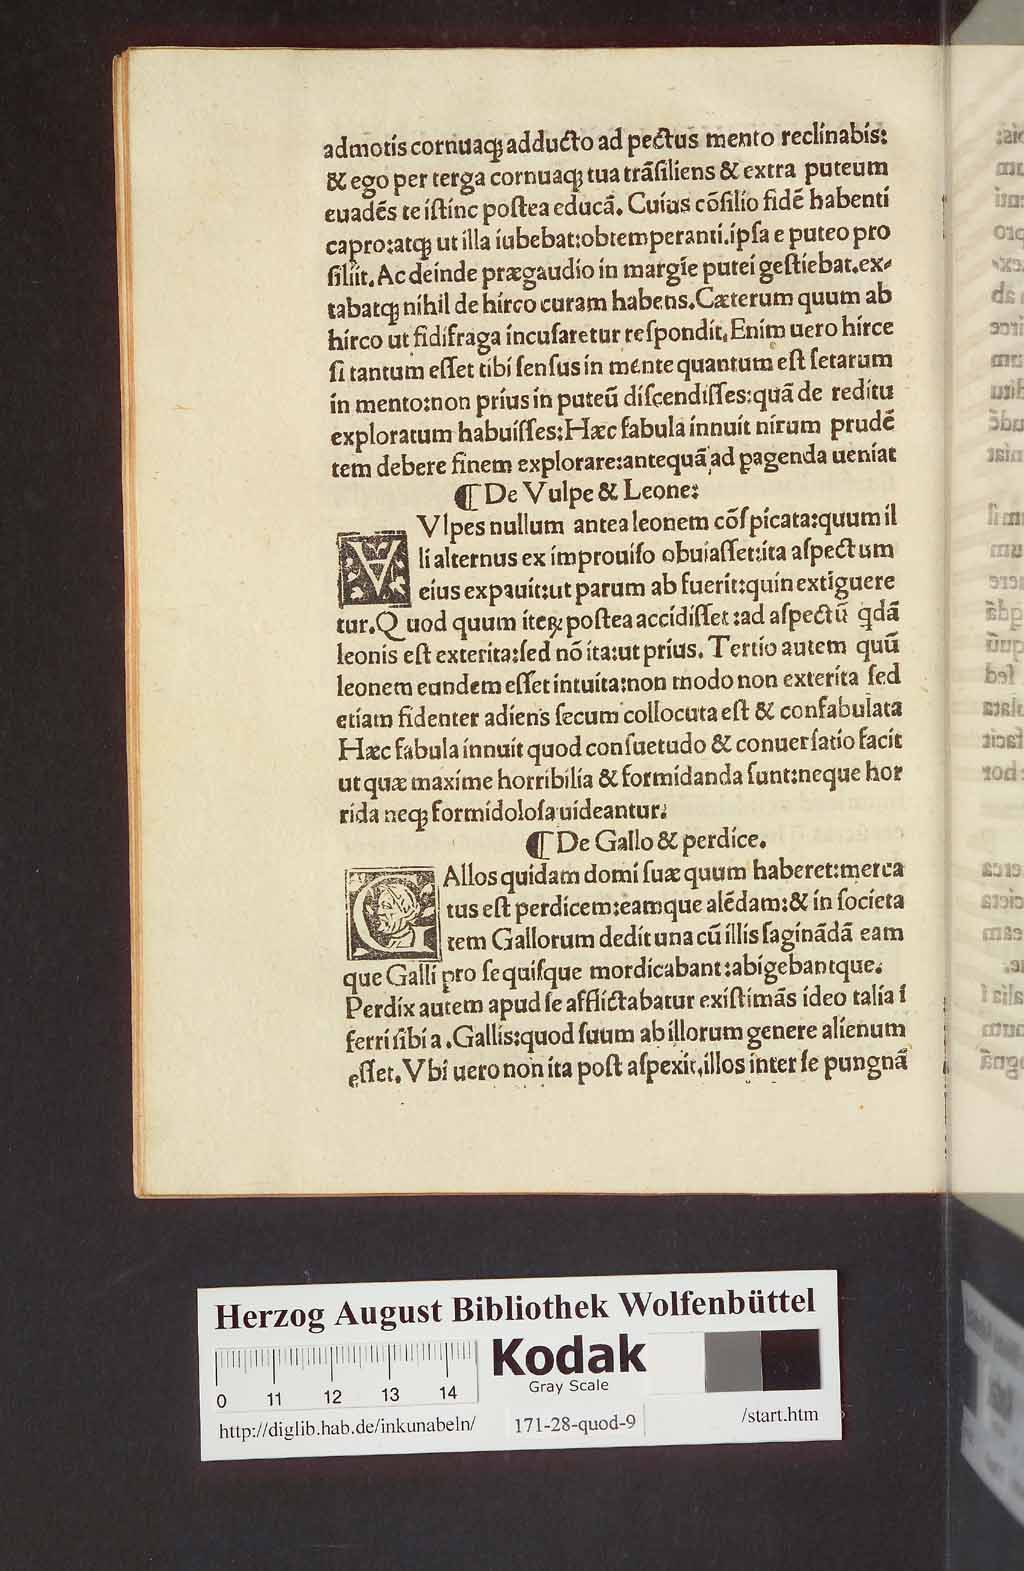 admotis cornuaqꝫ adducto ad pectus mento reclinabis:
& ego per terga cornuaqꝫ tua trãſiliens & extra puteum
euadẽs te iſtinc poſtea educã. Cuius cõſilio fidẽ habenti
capro:atqꝫ ut illa iubebat:obtemperanti.ipſa e puteo pro
ſiliit. Ac deinde prægaudio in margĩe putei geſtiebat.ex⸗
tabatqꝫ nihil de hirco curam habens. Cæterum quum ab
hirco ut fidifraga incuſaretur reſpondit. Enim uero hirce
ſi tantum eſſet tibi ſenſus in mente quantum eſt ſetarum
in mento:non prius in puteũ diſcendiſſes:quã de reditu
exploratum habuiſſes: Hæc fabula innuit uirum prudẽ
tem debere finem explorare:antequã ad ꝑagenda ueniat
¶ De Vulpe & Leone:
VVlpes nullum antea leonem cõſpicata:quum il
li alternus ex improuiſo obuiaſſet:ita aſpectum
eius expauit:ut parum ab fuerit:quin extĩguere
tur. Quod quum iteꝝ poſtea accidiſſet :ad aſpectũ qdã
leonis eſt exterita:ſed nõ ita:ut prius. Tertio autem quũ
leonem eundem eſſet intuita:non modo non exterita ſed
etiam fidenter adiens ſecum collocuta eſt & confabulata
Hæc fabula innuit quod conſuetudo & conuerſatio facit
ut quæ maxime horribilia & formidanda ſunt:neque hor
rida neqꝫ formidoloſa uideantur:
¶ De Gallo & perdice.
GAllos quidam domi ſuæ quum haberet:merca
tus eſt perdicem:eamque alẽdam:& in ſocieta
tem Gallorum dedit una cũ illis ſaginãdã eam
que Galli pro ſe quiſque mordicabant:abigebantque:
Perdix autem apud ſe afflictabatur exiſtimãs ideo talia ĩ
ferri ſibi a .Gallis:quod ſuum ab illorum genere alienum
eſſet. Vbi uero non ita poſt aſpexit,illos inter ſe pungnã
Herzog August Bibliothek Wolfenbüttel
Kodak
Gray Scale
0 11 12 13 14
http://diglib.hab.de/inkunabeln/ 171-28-quod-9 /start.htm